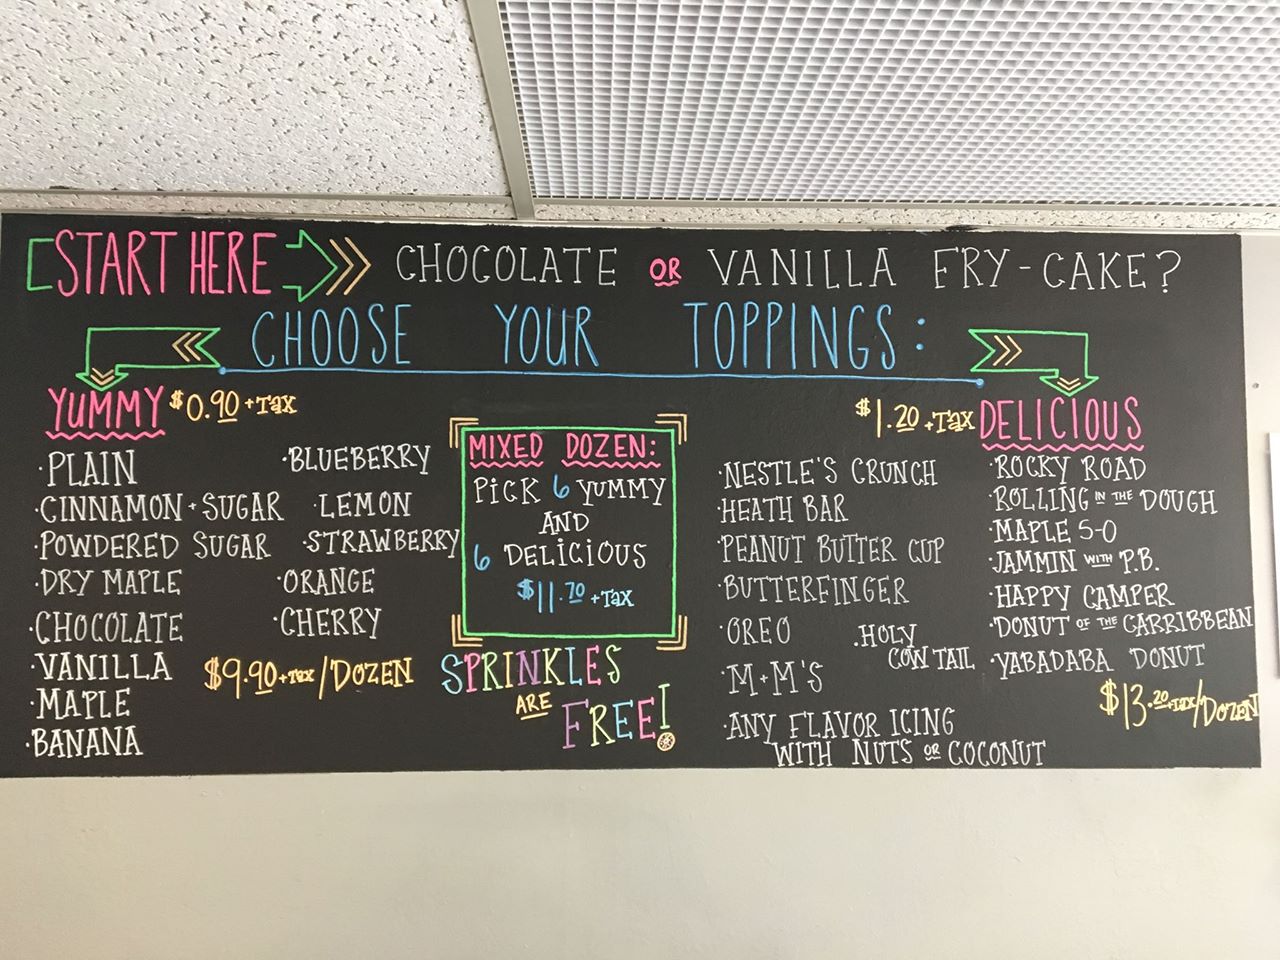 START HERE CHOCOLATE OR VANILLA FRY-CAKE?
CHOOSE YOUR TOPPINGS:
YUMMY $0.90 + TAX
·PLAIN
·CINNAMON + SUGAR
·POWDERED SUGAR
·DRY MAPLE
·CHOCOLATE
·VANILLA
·MAPLE
·BANANA
·BLUEBERRY
·LEMON
·STRAWBERRY
·ORANGE
·CHERRY
$9.90 + TAX / DOZEN
MIXED DOZEN:
PICK 6 YUMMY
AND
6 DELICIOUS
$11.70 + TAX
SPRINKLES
ARE
FREE!
$1.20 + TAX DELICIOUS
·NESTLE'S CRUNCH
·HEATH BAR
·PEANUT BUTTER CUP
·BUTTERFINGER
·OREO
·M+M'S
·HOLY
COW TAIL
·ANY FLAVOR ICING
WITH NUTS OR COCONUT
·ROCKY ROAD
·ROLLING IN THE DOUGH
·MAPLE 5-0
·JAMMIN WITH P.B.
·HAPPY CAMPER
·DONUT OF THE CARRIBBEAN
·YABADABA DONUT
$13.20 + TAX / DOZEN